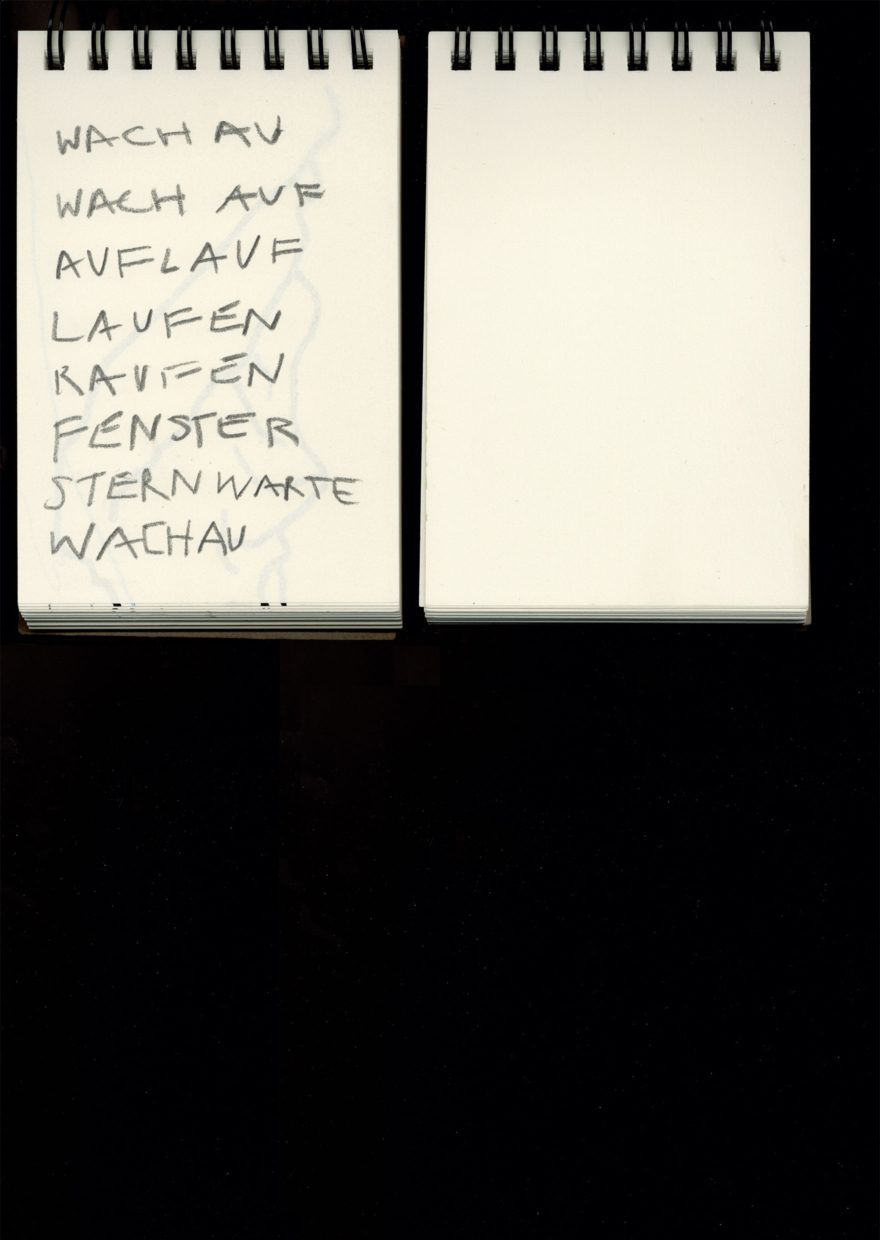 WACH AU
WACH AUF
AUFLAUF
LAUFEN
RAUFEN
FENSTER
STERNWARTE
WACHAU